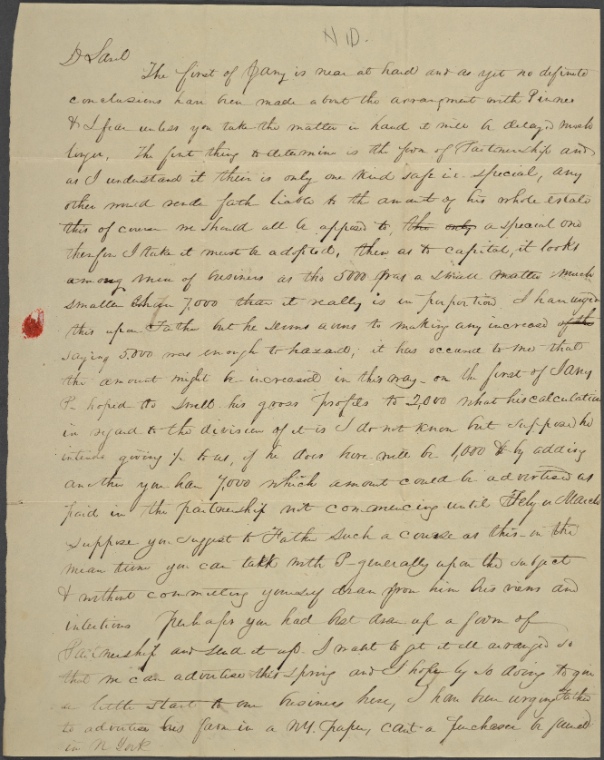 N D.
Dr Saml
The first of Jany is near at hand and as yet no definite
conclusions have been made about the arrangment with Peirres
& I fear unless you take the matter in hand it will be delayed much
longer. The first thing to determine is the form of Partnership and
as I understand it their is only one kind safe i.e. special, any
other would rende fath liable to th amount of his whole estate
this of course we should all be apposed to, the only a special one
therefor I take it must be adopted, then as to capital, it looks
among men of business as tho 5000 was a small matter much
smaller than 7,000 than it really is in proportion I have urged
this upon Father but he seems averse to making any increase of th
saying 5.000 was enough to hazard, it has occured to me that
the amount might be increased in this way - on the first of Jany
P- hoped to swell his gross profits to 2,000 what his calculations
in regard to the division of it is I do not know but suppose he
intends giving ½ to us, if he does here will be 1,000 & by adding
another you have 7,000 which amount could be advertised as
paid in the partnership not commencing until Feby or March
Suppose you suggest to Father such a course as this - in the
mean time you can talk with P- generally upon the subject
& without committing yourself draw from him his views and
intentions Perhaps you had best draw up a form of
Partnership and send it up. I want to get it all arranged so
that we can advertise this spring and I hope by so doing to give
a little start to our business here, I have been urging Father
to advertise his farm in a N.Y. paper, cant a purchaser be found
in N York